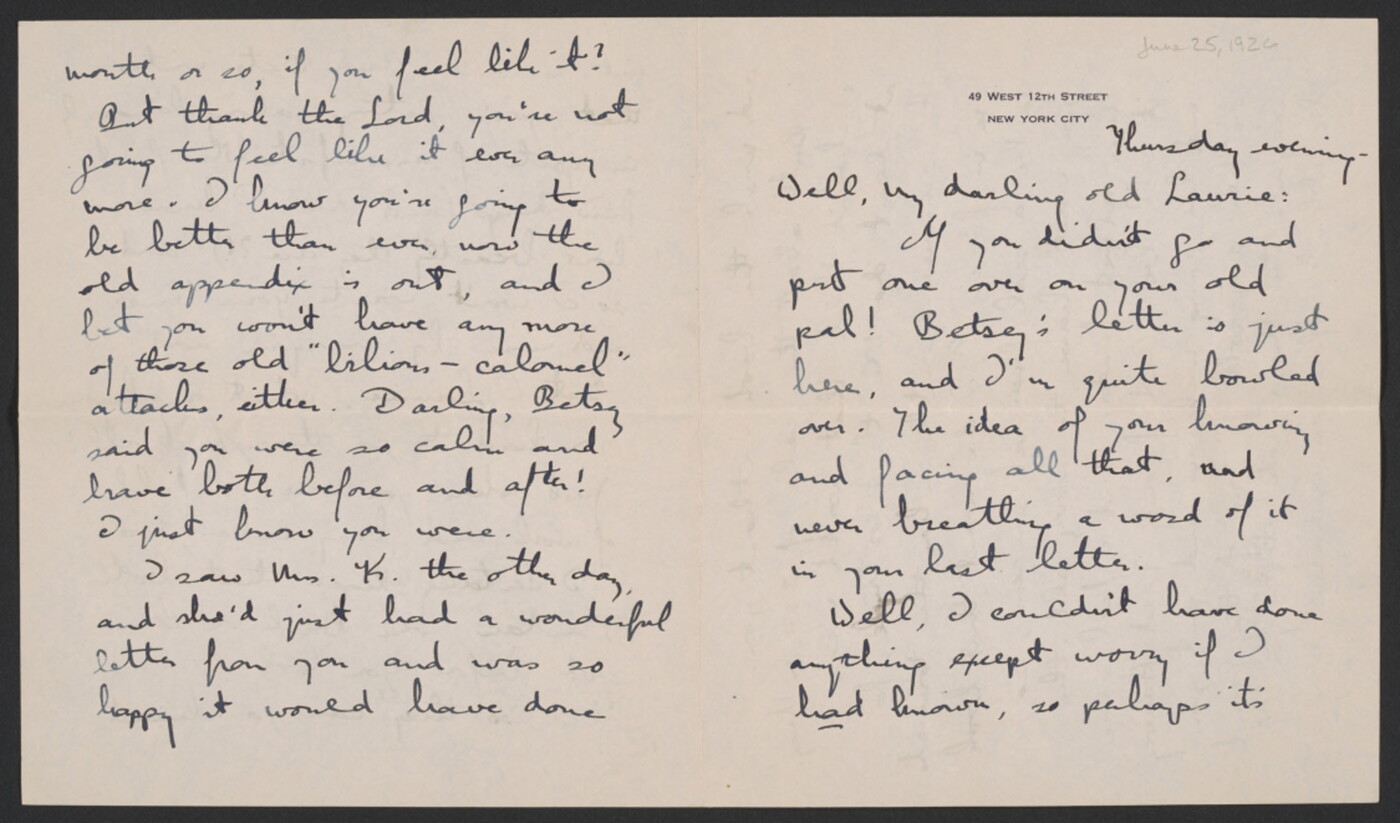 month or so, if you feel like it?
But thank the Lord, you're not
going to feel like it ever any
more. I know you're going to
be better than ever, now the
old appendix is out, and I
bet you won't have any more
of those old "bilious - calomel"
attacks, either. Darling, Betsey
said you were so calm and
brave both before and after!
I just know you were.
I saw Mrs. K. the other day,
and she'd just had a wonderful
letter from you and was so
happy it would have done
June 25, 1926
49 WEST 12TH STREET
NEW YORK CITY
Thursday evening -
Well, my darling old Laurie:
If you didn't go and
put one over on your old
pal! Betsey's letter is just
here, and I'm quite bowled
over. The idea of your knowing
and facing all that, and
never breathing a word of it
in your last letter.
Well, I couldn't have done
anything except worry if I
had known, so perhaps it's